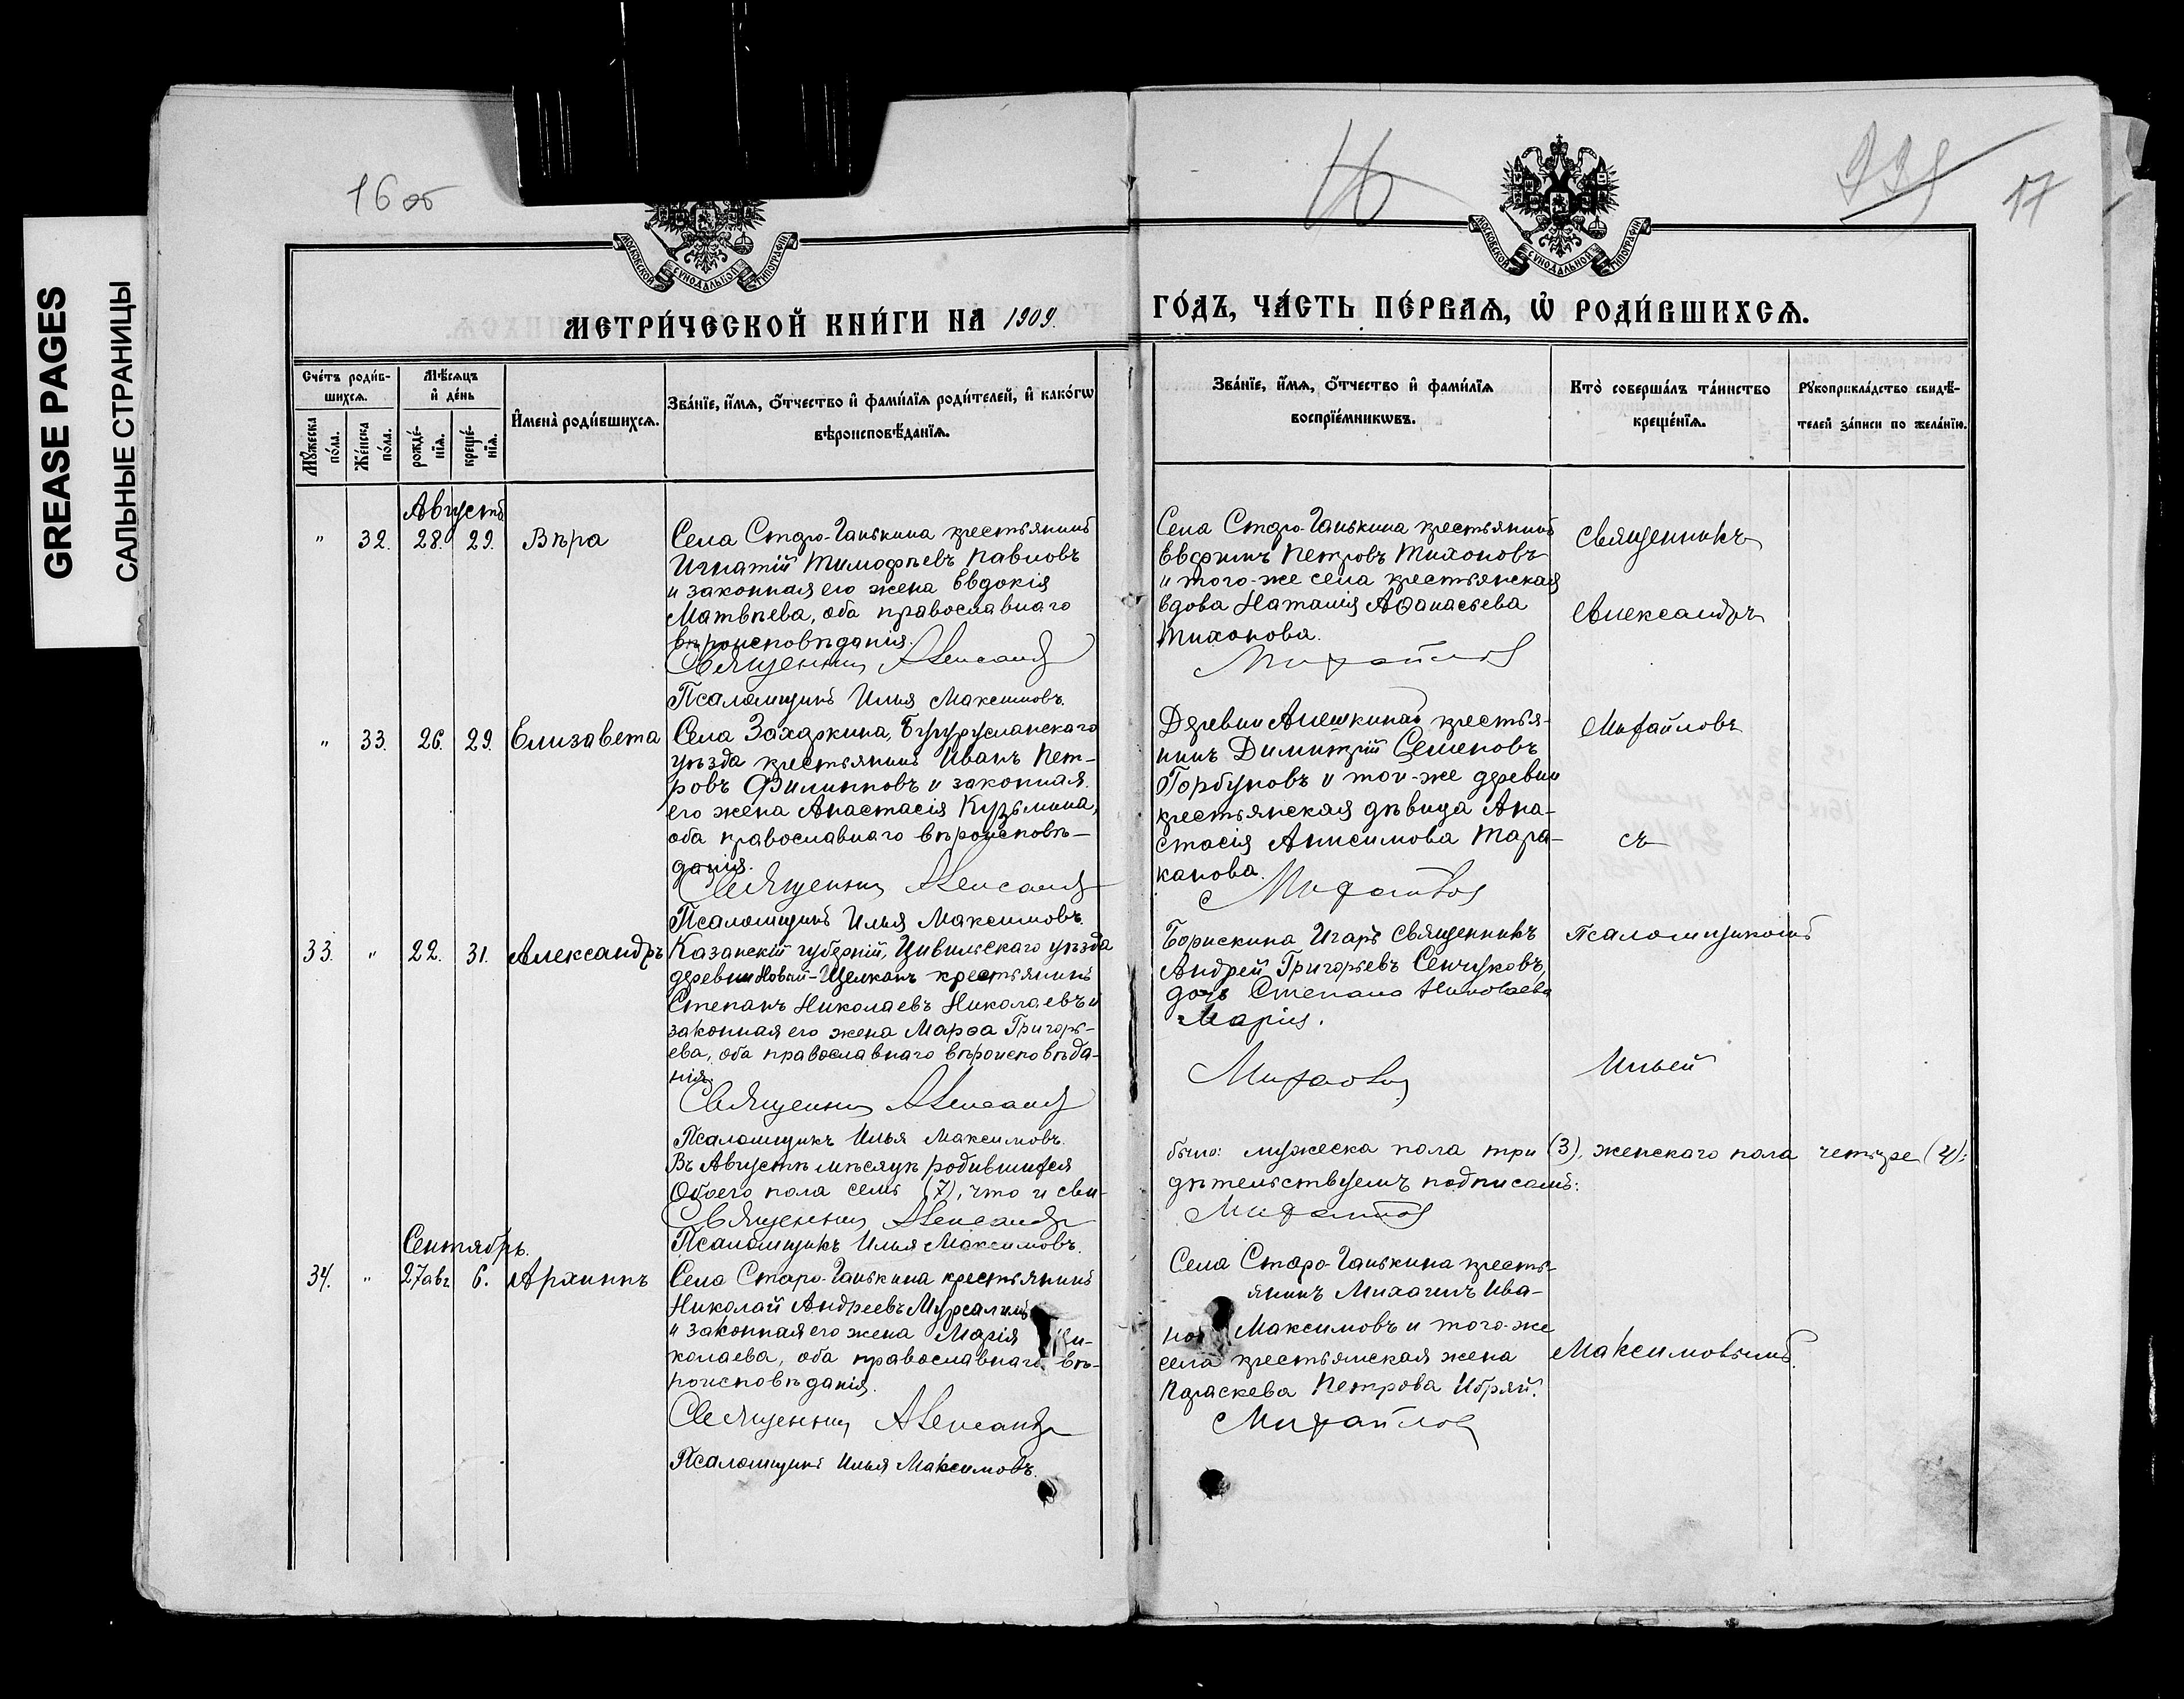 GREASE PAGES
САЛЬНЫЕ СТРАНИЦЫ
16 об
16
17
МОСКОВСКОЙ СѴНОДАЛЬНОЙ ТИПОГРАФІИ
МОСКОВСКОЙ СѴНОДАЛЬНОЙ ТИПОГРАФІИ
МЕТРИ́ЧЕСКОЙ КНИ́ГИ НА 1909.
ГО́ДЪ, ЧА́СТЬ ПЕ́РВАѦ, Ѡ҆ РОДИ́ВШИХСѦ.
Сче́тъ роди́в-
шихсѧ.
Мѣ́сѧцъ
и҆ де́нь
Му́жеска по́ла.
Же́нска по́ла.
рожде́-нїѧ.
креще́-нїѧ.
И҆мена̀ роди́вшихсѧ.
Зва́нїе, и҆́мѧ, ѻ҆́тчество и҆ фами́лїѧ роди́телей, и҆ како́гѡ
вѣроисповѣ́данїѧ.
Зва́нїе, и҆́мѧ, ѻ҆́тчество и҆ фами́лїѧ
воспрїе́мникѡвъ.
Кто̀ соверша́лъ та́инство
креще́нїѧ.
Рукоприкла́дство свидѣ́-
телей за́писи по жела́нїю.
Августъ
" 32. 28. 29. Вѣра
Села Старо-Ганькина крестьянинъ
Игнатій Тимофѣевъ Павловъ
и законная его жена Евдокія
Матвѣева, оба православнаго
вѣроисповѣданія.
Священникъ Александръ
Псаломщикъ Илья Максимовъ.
Села Старо-Ганькина крестьянинъ
Евфимъ Петровъ Тихоновъ
и того-же села крестьянская
вдова Наталія Аѳанасьева
Тихонова.
Михайловъ
Священникъ
Александръ
" 33. 26. 29. Елизавета
Села Захаркина, Бугурусланскаго
уѣзда крестьянинъ Иванъ Пет-
ровъ Филипповъ и законная
его жена Анастасія Кузьмина,
оба православнаго вѣроисповѣ-
данія.
Священникъ Александръ
Псаломщикъ Илья Максимовъ.
Деревни Алешкиной крестья-
нинъ Димитрій Семеновъ
Горбуновъ и той-же деревни
крестьянская дѣвица Ана-
стасія Анисимова Тара-
канова.
Михайловъ
Михайловъ
съ
33. " 22. 31. Александръ
Казанскій губерній, Цивильскаго уѣзда
деревни Новый-Щелканъ крестьянинъ
Степанъ Николаевъ Николаевъ и
законная его жена Марѳа Григорь-
ева, оба православнаго вѣроисповѣда-
нія.
Священникъ Александръ
Псаломщикъ Илья Максимовъ.
Борискина Игаръ священникъ
Андрей Григорьевъ Сенчуковъ,
дочь Степана Николаева
Марія.
Михайловъ
Псаломщикомъ
Ильей
Въ Августѣ мѣсяцѣ родившихся
было: мужеска пола три (3), женскаго пола четыре (4);
Обоего пола семь (7), что и сви-
дѣтельствуемъ подписомъ:
Священникъ Александръ
Михайловъ
Псаломщикъ Илья Максимовъ.
Сентябрь.
34. " 27 авг 6. Архиппъ
Села Старо-Ганькина крестьянинъ
Николай Андреевъ Мурсалимъ
и законная его жена Марія Ни-
колаева, оба православнаго вѣ-
роисповѣданія.
Священникъ Александръ
Псаломщикъ Илья Максимовъ.
Села Старо-Ганькина кресть-
янинъ Михаилъ Ива-
нов Максимовъ и того-же
села крестьянская жена
Параскева Петрова Ибряй.
Михайловъ
Максимовымъ.